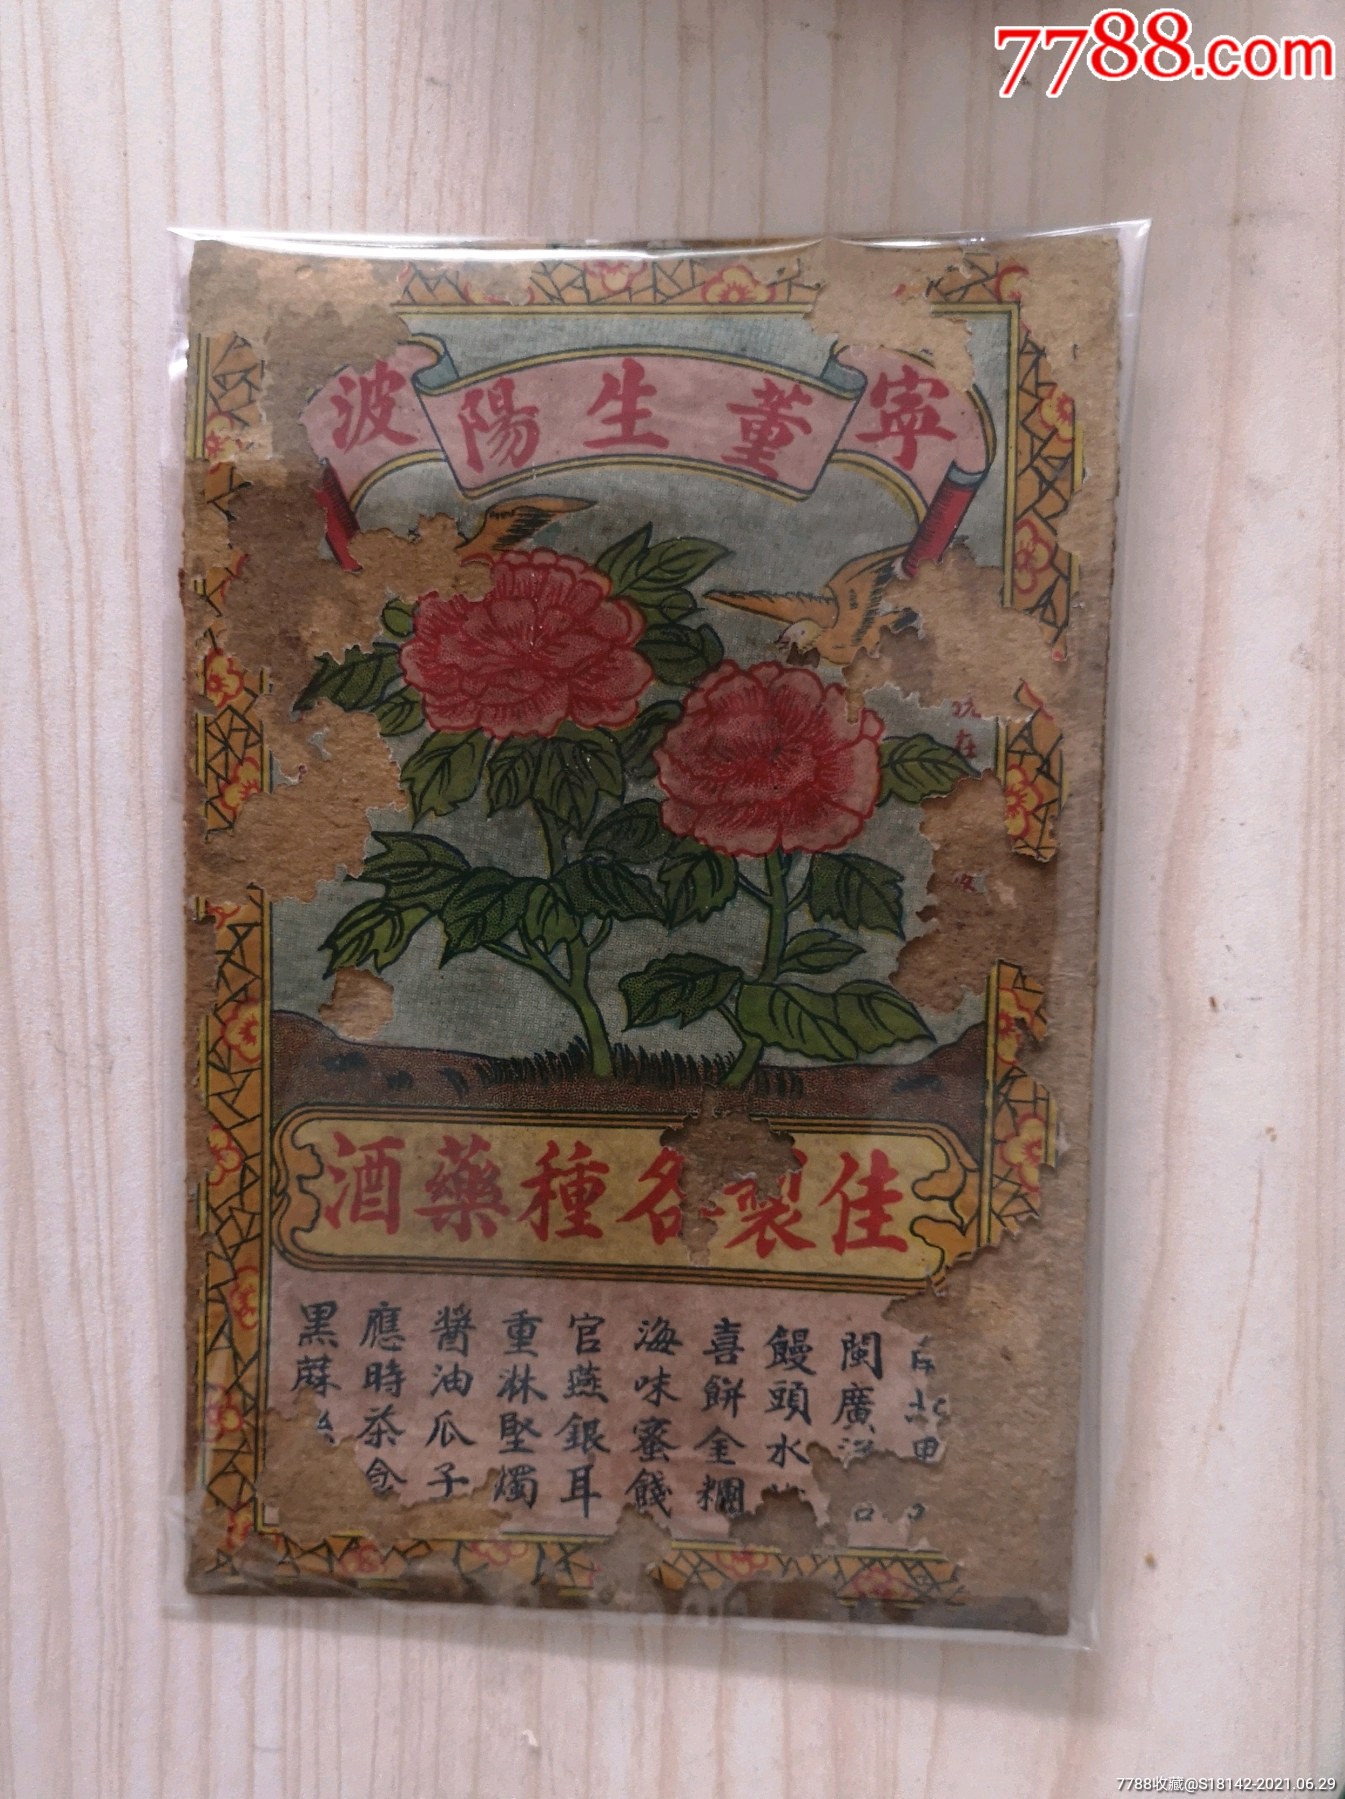 7788.com
寧董生陽波
坊
在
佳製各種藥酒
閩廣
饅頭水
喜餅金糰
海味蜜餞
官燕銀耳
重淋堅燭
醬油瓜子
應時茶食
黑蔴
7788收藏@S18142-2021.06.29